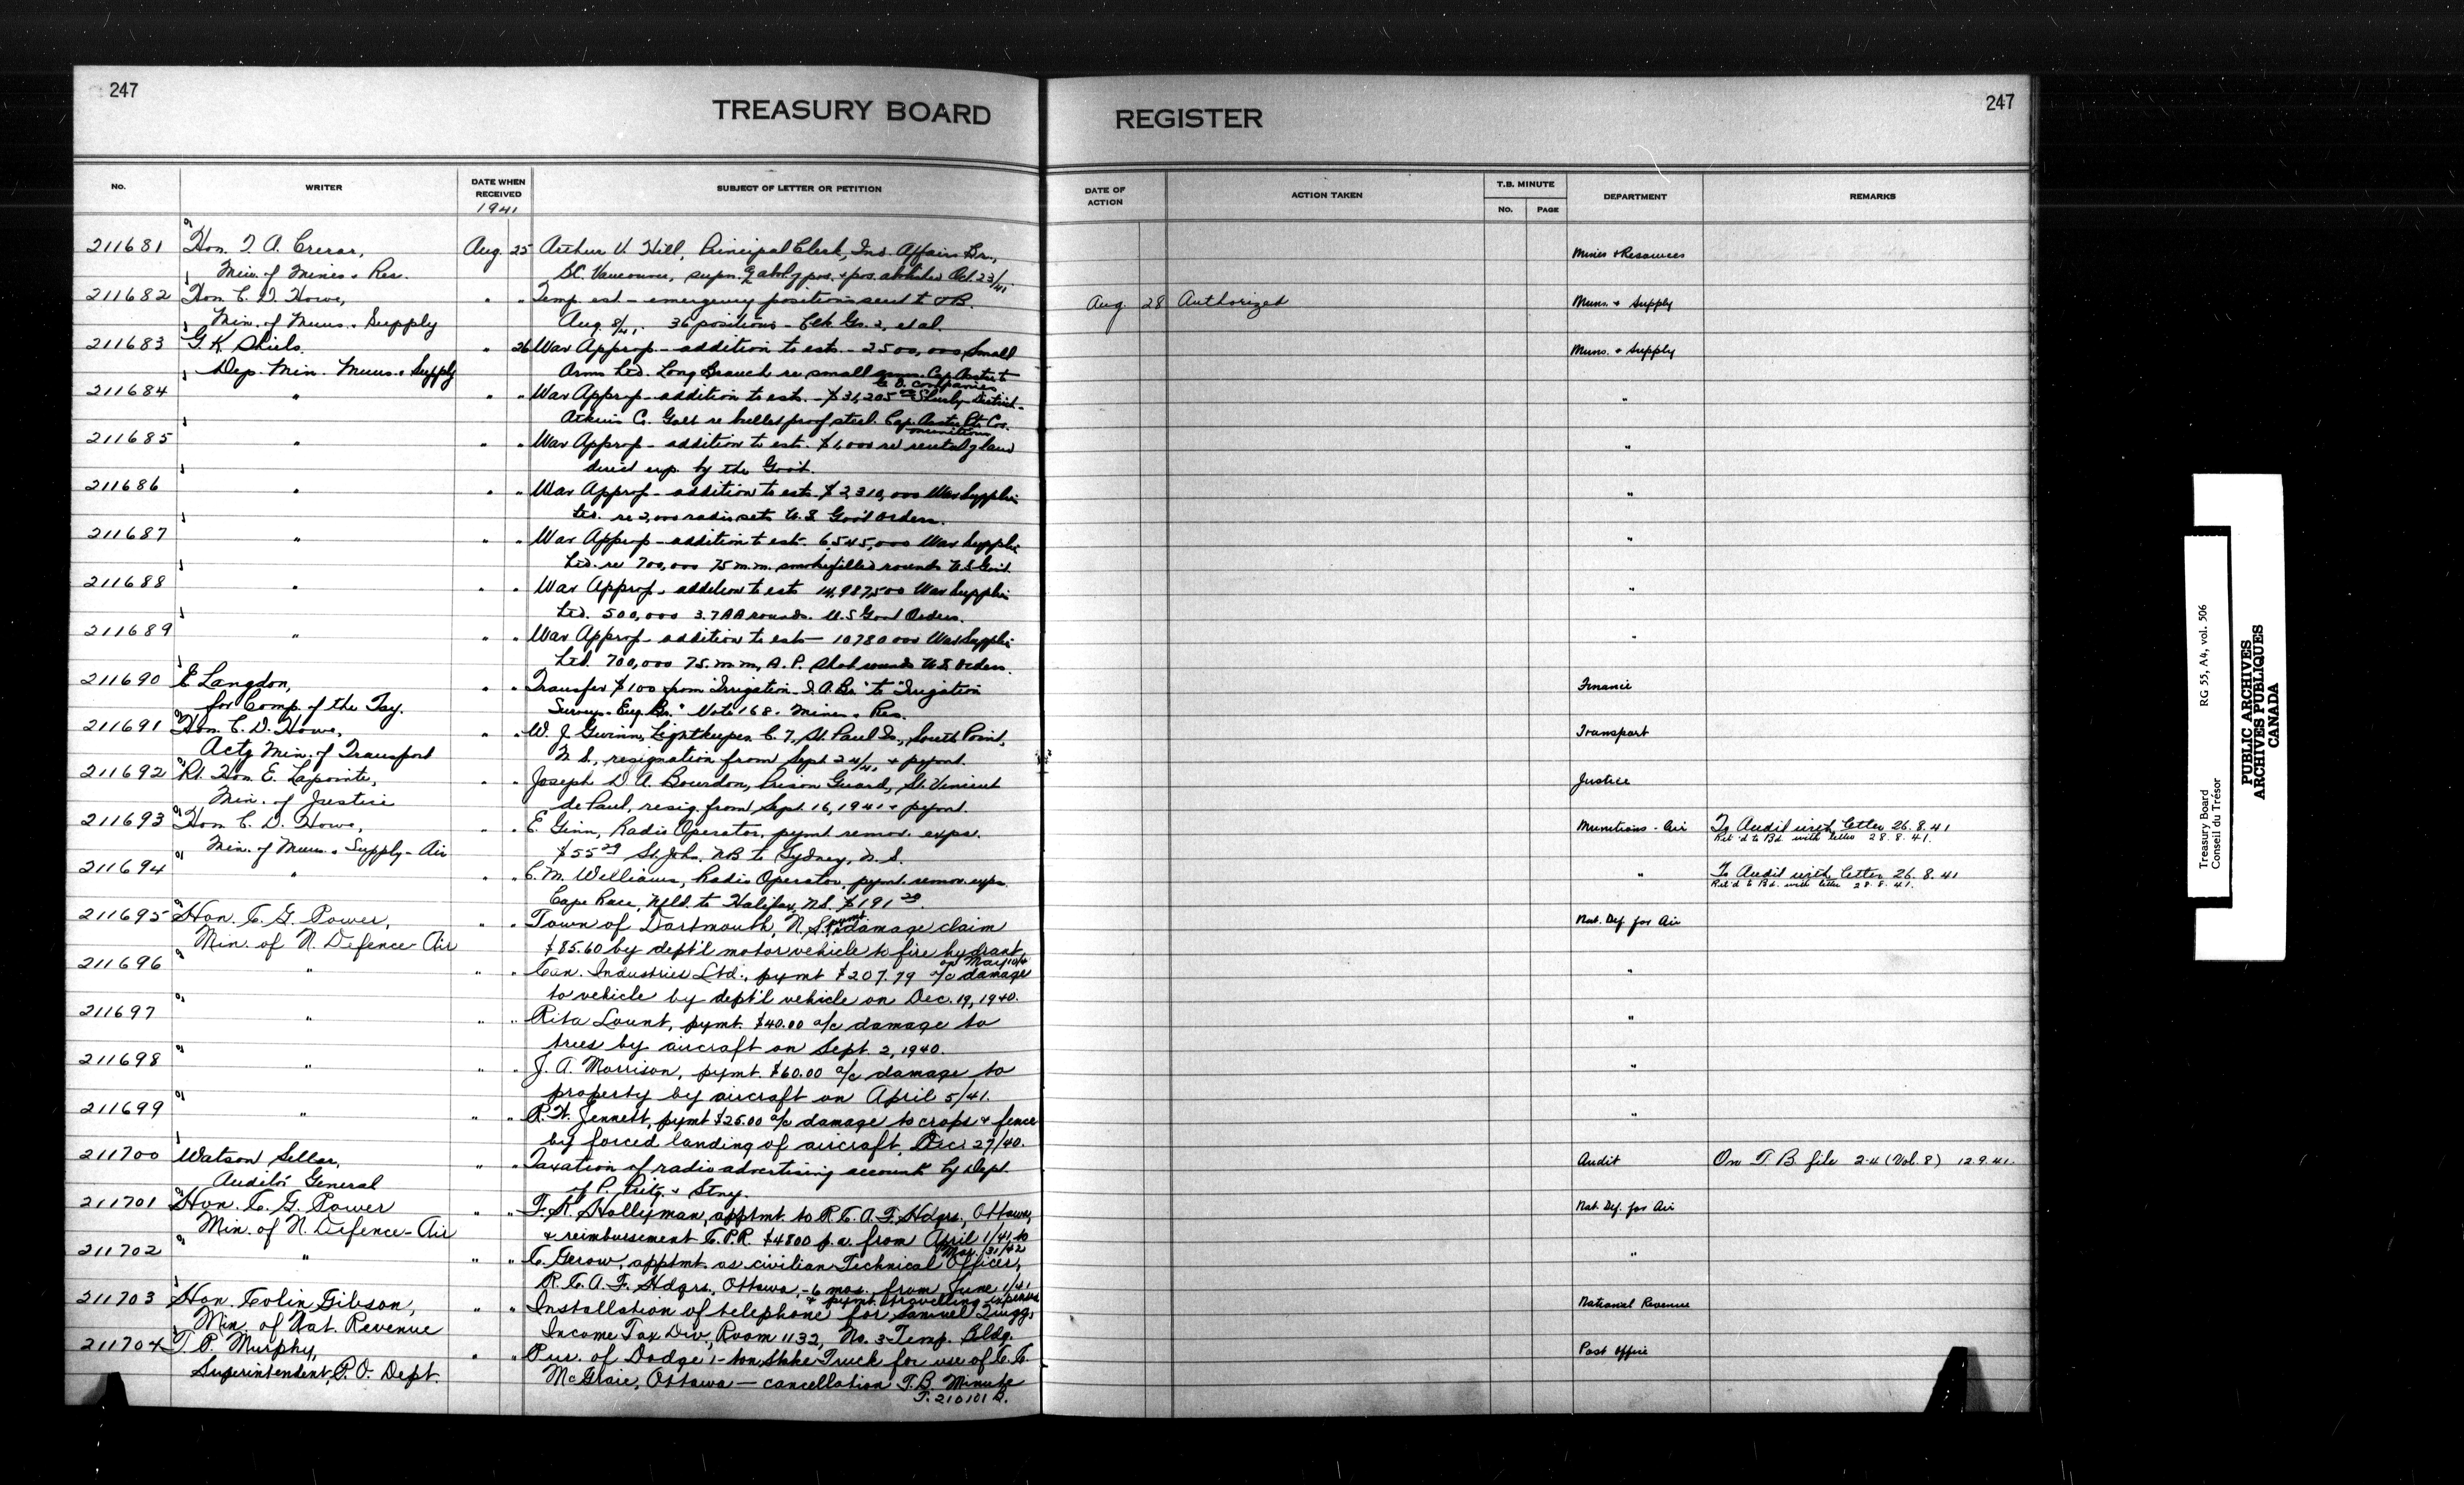 247
TREASURY BOARD
REGISTER
247
No.
WRITER
DATE WHEN RECEIVED
1941
SUBJECT OF LETTER OR PETITION
DATE OF ACTION
ACTION TAKEN
T.B. MINUTE
NO.
PAGE
DEPARTMENT
REMARKS
211681 Hon. T. A. Crerar, Aug. 25 Arthur V. Hill, Principal Clerk, Ind. Affairs Br., Mines & Resources
Min. of Mines & Res. B.C. Vancouver, Oct 23/41
211682 Hon. C. D. Howe, " " Temp. est - emergency positions sent to Aug. 28 Authorized Muns. & Supply
Min. of Muns. & Supply Aug. 8/41. 36 positions - Clk Gr. 2, et al.
211683 G. K. Shiels " 26 War Approp - addition to est. - 2500,000 Small Muns. & Supply
Dep. Min. Muns. & Supply Arms Ltd. Long Branch re small arms. Cap. Assist to
C. D. companies
211684 " " " War Approp - addition to est. - $31,205 "
Galt re bullet proof steel. Cap. Assts. Pte Cos.
munitions
211685 " " " War Approp - addition to est. $1,000 re rental of land "
by the Gov't.
211686 " " " War Approp - addition to est. $2,310,000 War Supplies "
Ltd. re 2,000 radio sets U.S. Gov't Orders.
211687 " " " War Approp - addition to est. 6,545,000 War Supplies "
Ltd. re 700,000 75 m.m. smoke filled rounds U.S. Gov't.
211688 " " " War Approp - addition to est 14,987,500 War Supplies "
Ltd. 500,000 3.7 AA rounds. U.S. Govt Orders.
211689 " " " War Approp - addition to est - 10780 000 War Supplies "
Ltd. 700,000 75 m.m, A.P. Shot rounds U.S. Orders.
211690 E Langdon, " " Transfer $100 from "Irrigation - I. A. Br." to "Irrigation Finance
for Comp. of the Tsy. Surveys - Eng. Br." Vote 168. Mines & Res.
211691 Hon. C. D. Howe, " " W. J. Gwinn, Lightkeeper C. 7, St. Paul Is., South Point, Transport
Actg Min. of Transport N.S., resignation from Sept 24/41 & pymt.
211692 Rt. Hon E. Lapointe, " " Joseph D. A. Bourdon, Prison Guard, St. Vincent Justice
Min. of Justice de Paul, resig. from Sept. 16, 1941 & pymt.
211693 Hon C. D. Howe, " " E. Ginn, Radio Operator, pymt remov. exps. Munitions - Air To Audit with letter 26.8.41
Ret'd to Bd. with letter 28.8.41.
Min. of Muns. & Supply - Air $55.29 St. John, NB to Sydney, N.S.
211694 " " " C. M. Williams, Radio Operator, pymt. remov. exps. " To Audit with letter 26.8.41
Ret'd to Bd. with letter 28.8.41.
Cape Race, Nfld. to Halifax, N.S. $191.29.
211695 Hon. C. G. Power, " " Town of Dartmouth, N.S. pymt. damage claim Nat. Def. for Air
Min. of N. Defence - Air $85.60 by dept'l motor vehicle to fire hydrant,
on May
211696 " " " Can. Industries Ltd., pymt $207.79 a/c damage "
to vehicle by dept'l vehicle on Dec. 19, 1940.
211697 " " " Rita Lount, pymt. $40.00 a/c damage to "
trees by aircraft on Sept. 2, 1940.
211698 " " " J. A. Morrison, pymt. $60.00 a/c damage to "
property by aircraft on April 5/41.
211699 " " " R. H. Jennett, pymt $25.00 a/c damage to crops & fence "
by forced landing of aircraft, Dec. 27/40.
211700 Watson Sellar, " " Taxation of radio advertising accounts by Dept. Audit On T. B. file 2-4 (Vol. 8) 12.9.41.
Auditor General of P. Ptg. & Stny.
211701 Hon. C. G. Power " " F. R. Hollyman, apptmt. to R.C.A.F. Hdqrs., Ottawa, Nat. Def. for Air
Min. of N. Defence - Air & reimbursement C.P.R. $4800 p.a. from April 1/41 to
Mar. 31/42
211702 " " " C. Gerow, apptmt. as civilian Technical Officer, "
R.C.A.F. Hdqrs., Ottawa, - 6 mos. from June 1/41
& pymt. travelling expenses
211703 Hon. Colin Gibson, " " Installation of telephone for Samuel Quigg, National Revenue
Min. of Nat. Revenue Income Tax Div., Room 1132, No. 3 Temp. Bldg.
211704 T. P. Murphy, " " Pur. of Dodge 1-ton Stake Truck for use of C. C. Post Office
Superintendent, P.O. Dept. Ottawa - cancellation T.B. Minute
T. 210101 B.
Treasury Board RG 55, A4, vol. 506
Conseil du Trésor
PUBLIC ARCHIVES
ARCHIVES PUBLIQUES
CANADA